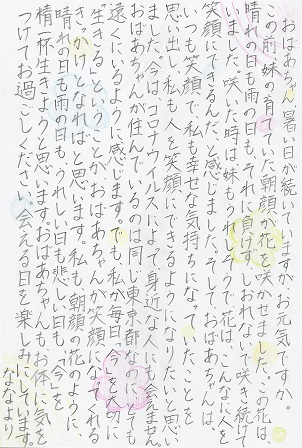 おばあちゃん、暑い日が続いていますがお元気ですか。
この前妹の育てていた朝顔が花を咲かせました。この花は
晴れの日も雨の日も、それに負けずしおれないで咲き続けて
いました。咲いた時は妹もうれしそうで花は、みんなを
笑顔にできるんだ、と感じました。そしておばあちゃんは、
いつも笑顔で、私も幸せな気持ちになっていたことを
思い出し、私も人を笑顔にできるようになりたいと思い
ました。今は、コロナウイルスによって、身近な人にも会えません。
おばあちゃんが住んでいるのは同じ東京都なのにとても
遠くにいるように感じます。でも、私が毎日、「今」を大切に
「生きる」ということが、おばあちゃんが笑顔になってくれる
きっかけとなればと思います。私も、朝顔の花のように、
晴れの日も雨の日も、うれしい日も悲しい日も、「今」を
精一杯生きようと思います。おばあちゃんもお体に気を
つけてお過ごしください。会える日を楽しみにしています。
ななより